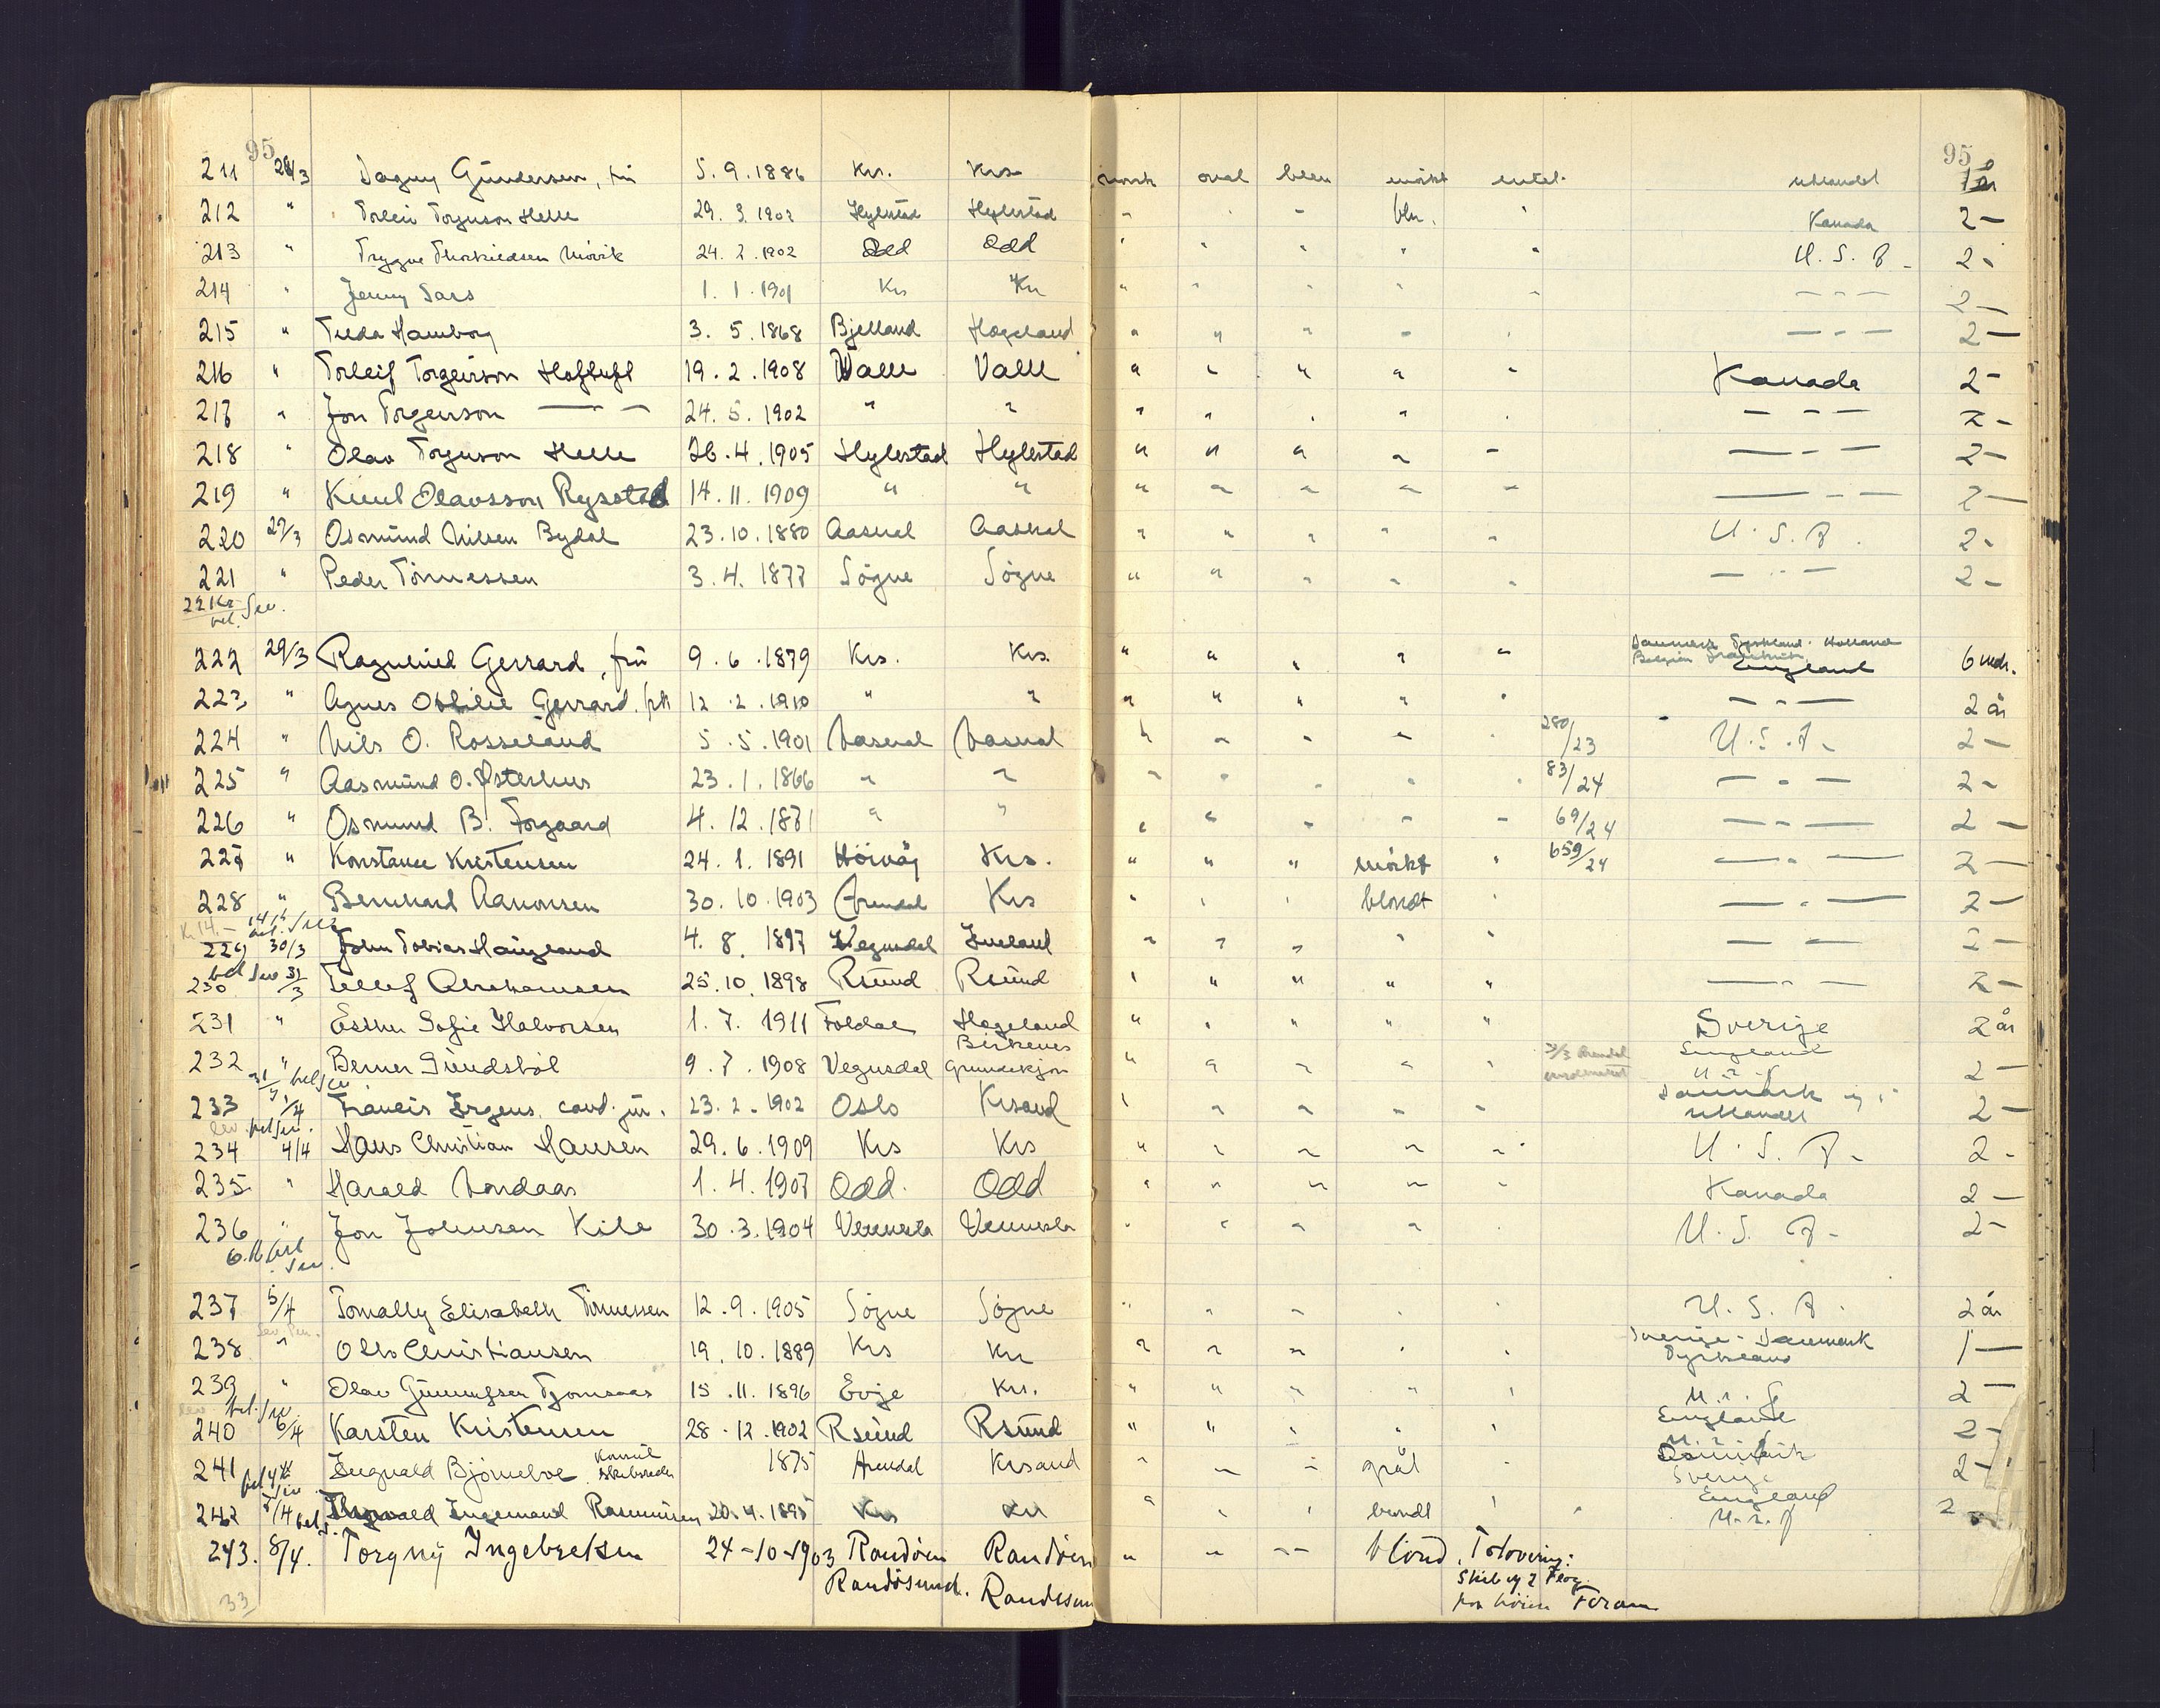 95 95
211 28/3 Dagny Gundersen, frü 5.9.1886 Krs. Krs. norsk oval been mörkt intet. utlandet 1 år
212 " Torleiv Torgusson Helle 29.3.1902 Hylestad Hylestad " " " blu. " Kanada 2 -
213 " Trygve Thorkildsen Mörik 24.2.1902 Odd Odd " " " " " U.S.A. 2 -
214 " Jenny Sars 1.1.1901 Krs Krs " " " " " - - - 2 -
215 " Tilda Hamborg 3.5.1868 Bjelland Hægeland " " " " " - - - 2 -
216 " Torleif Torgeirson Hoftuft 19.2.1908 Valle Valle " " " " " Kanada 2 -
217 " Jon Torgerson - - 24.5.1902 " " " " " " " - - - 2 -
218 " Olav Torguson Helle 26.4.1905 Hylestad Hylestad " " " " " - - - 2 -
219 " Knut Olavsson Rysstad 14.11.1909 " " " " " " " - - - 2 -
220 29/3 Osmünd Nilsen Bydal 23.10.1880 Aaseral Aaseral " " " " " U.S.A. 2 -
221 " Peder Tönnessen 3.4.1877 Sögne Sögne " " " " " - - - 2 -
22 Kr. bel. Sev.
222 29/3 Ragnhild Gerrard, frü 9.6.1879 Krs. Krs. " " " " " Danmark Tyskland Holland
Belgien Frankrik England 6 mdr.
223 " Agnes Othilie Gerrard, frk 12.2.1910 " " " " " " " - - - 2 år
224 " Nils O. Rosseland 5.5.1901 Aaseral Aaseral " " " " " 280/23 U.S.A. 2 -
225 " Aasmünd O. Østerhus 23.1.1866 " " " " " " " 83/24 - - - 2 -
226 " Osmund B. Torgaard 4.12.1871 " " " " " " " 69/24 - - - 2 -
227 " Konstance Kristensen 24.1.1891 Höivåg Krs. " " " mörkt " 659/24 - - - 2 -
228 " Bernhard Aanonsen 30.10.1903 Arendal Krs " " " blondt " - - - 2 -
Kr. 14.- bel. Sev.
229 30/3 John Tobias Haugland 4.8.1897 Vegusdal Iveland " " " " " - - 2 -
bel Sev
230 31/3 Tellef Abrahamsen 25.10.1898 Rsünd Rsünd " " " " " - - - 2 -
231 " Esther Sofie Halvorsen 1.7.1911 Foldal Hægeland " " " " " Sverige 2 år
232 " Berner Sündsböl 9.7.1908 Vegusdal Birkenes " " " " " England 2 -
31/3 bel Sev
233 1/4 Francis Irgens, cand. jur. 23.2.1902 Oslo Krsand " " " " " Danmark utlandet 2 -
bel Sev.
234 4/4 Hans Christian Hansen 29.6.1909 Krs Krs " " " " " U.S.A. 2 -
235 " Harald Aandaas 1.4.1907 Odd. Odd " " " " " Kanada 2 -
236 " Jon Johnsen Kile 30.3.1904 Vennesla Vennesla " " " " " U.S.A. 2 -
6. Kr bel Sev.
237 5/4 Tomally Elisabeth Tönnessen 12.9.1905 Sögne Sögne " " " " " U.S.A. 2 år
238 " Otto Christiansen 19.10.1889 Krs Krs " " " " " Sverige - Danmark
Tyskland 1 -
239 " Olav Gunnufsen 15.11.1896 Evje Krs. " " " " " 2 -
bel. Sev.
240 6/4 Karsten Kristensen 28.12.1902 Rsünd Rsünd " " " " " England 2 -
241 " Ingvald Björneboe Konsul
Skibsreder 1875 Arendal Krsand " " " grål " Danmark
Sverige 2 -
242 7/4 Ingemand Rasmussen 20.4.1895 Krs Krs " " " blondt " England 2 -
243. 8/4. Torgny Ingebretsen 24-10-1903 Randöen Randöen " " " blond, Totovering:
Randösund. Randösun Skib og 2 Flag
paa höire Foram
33